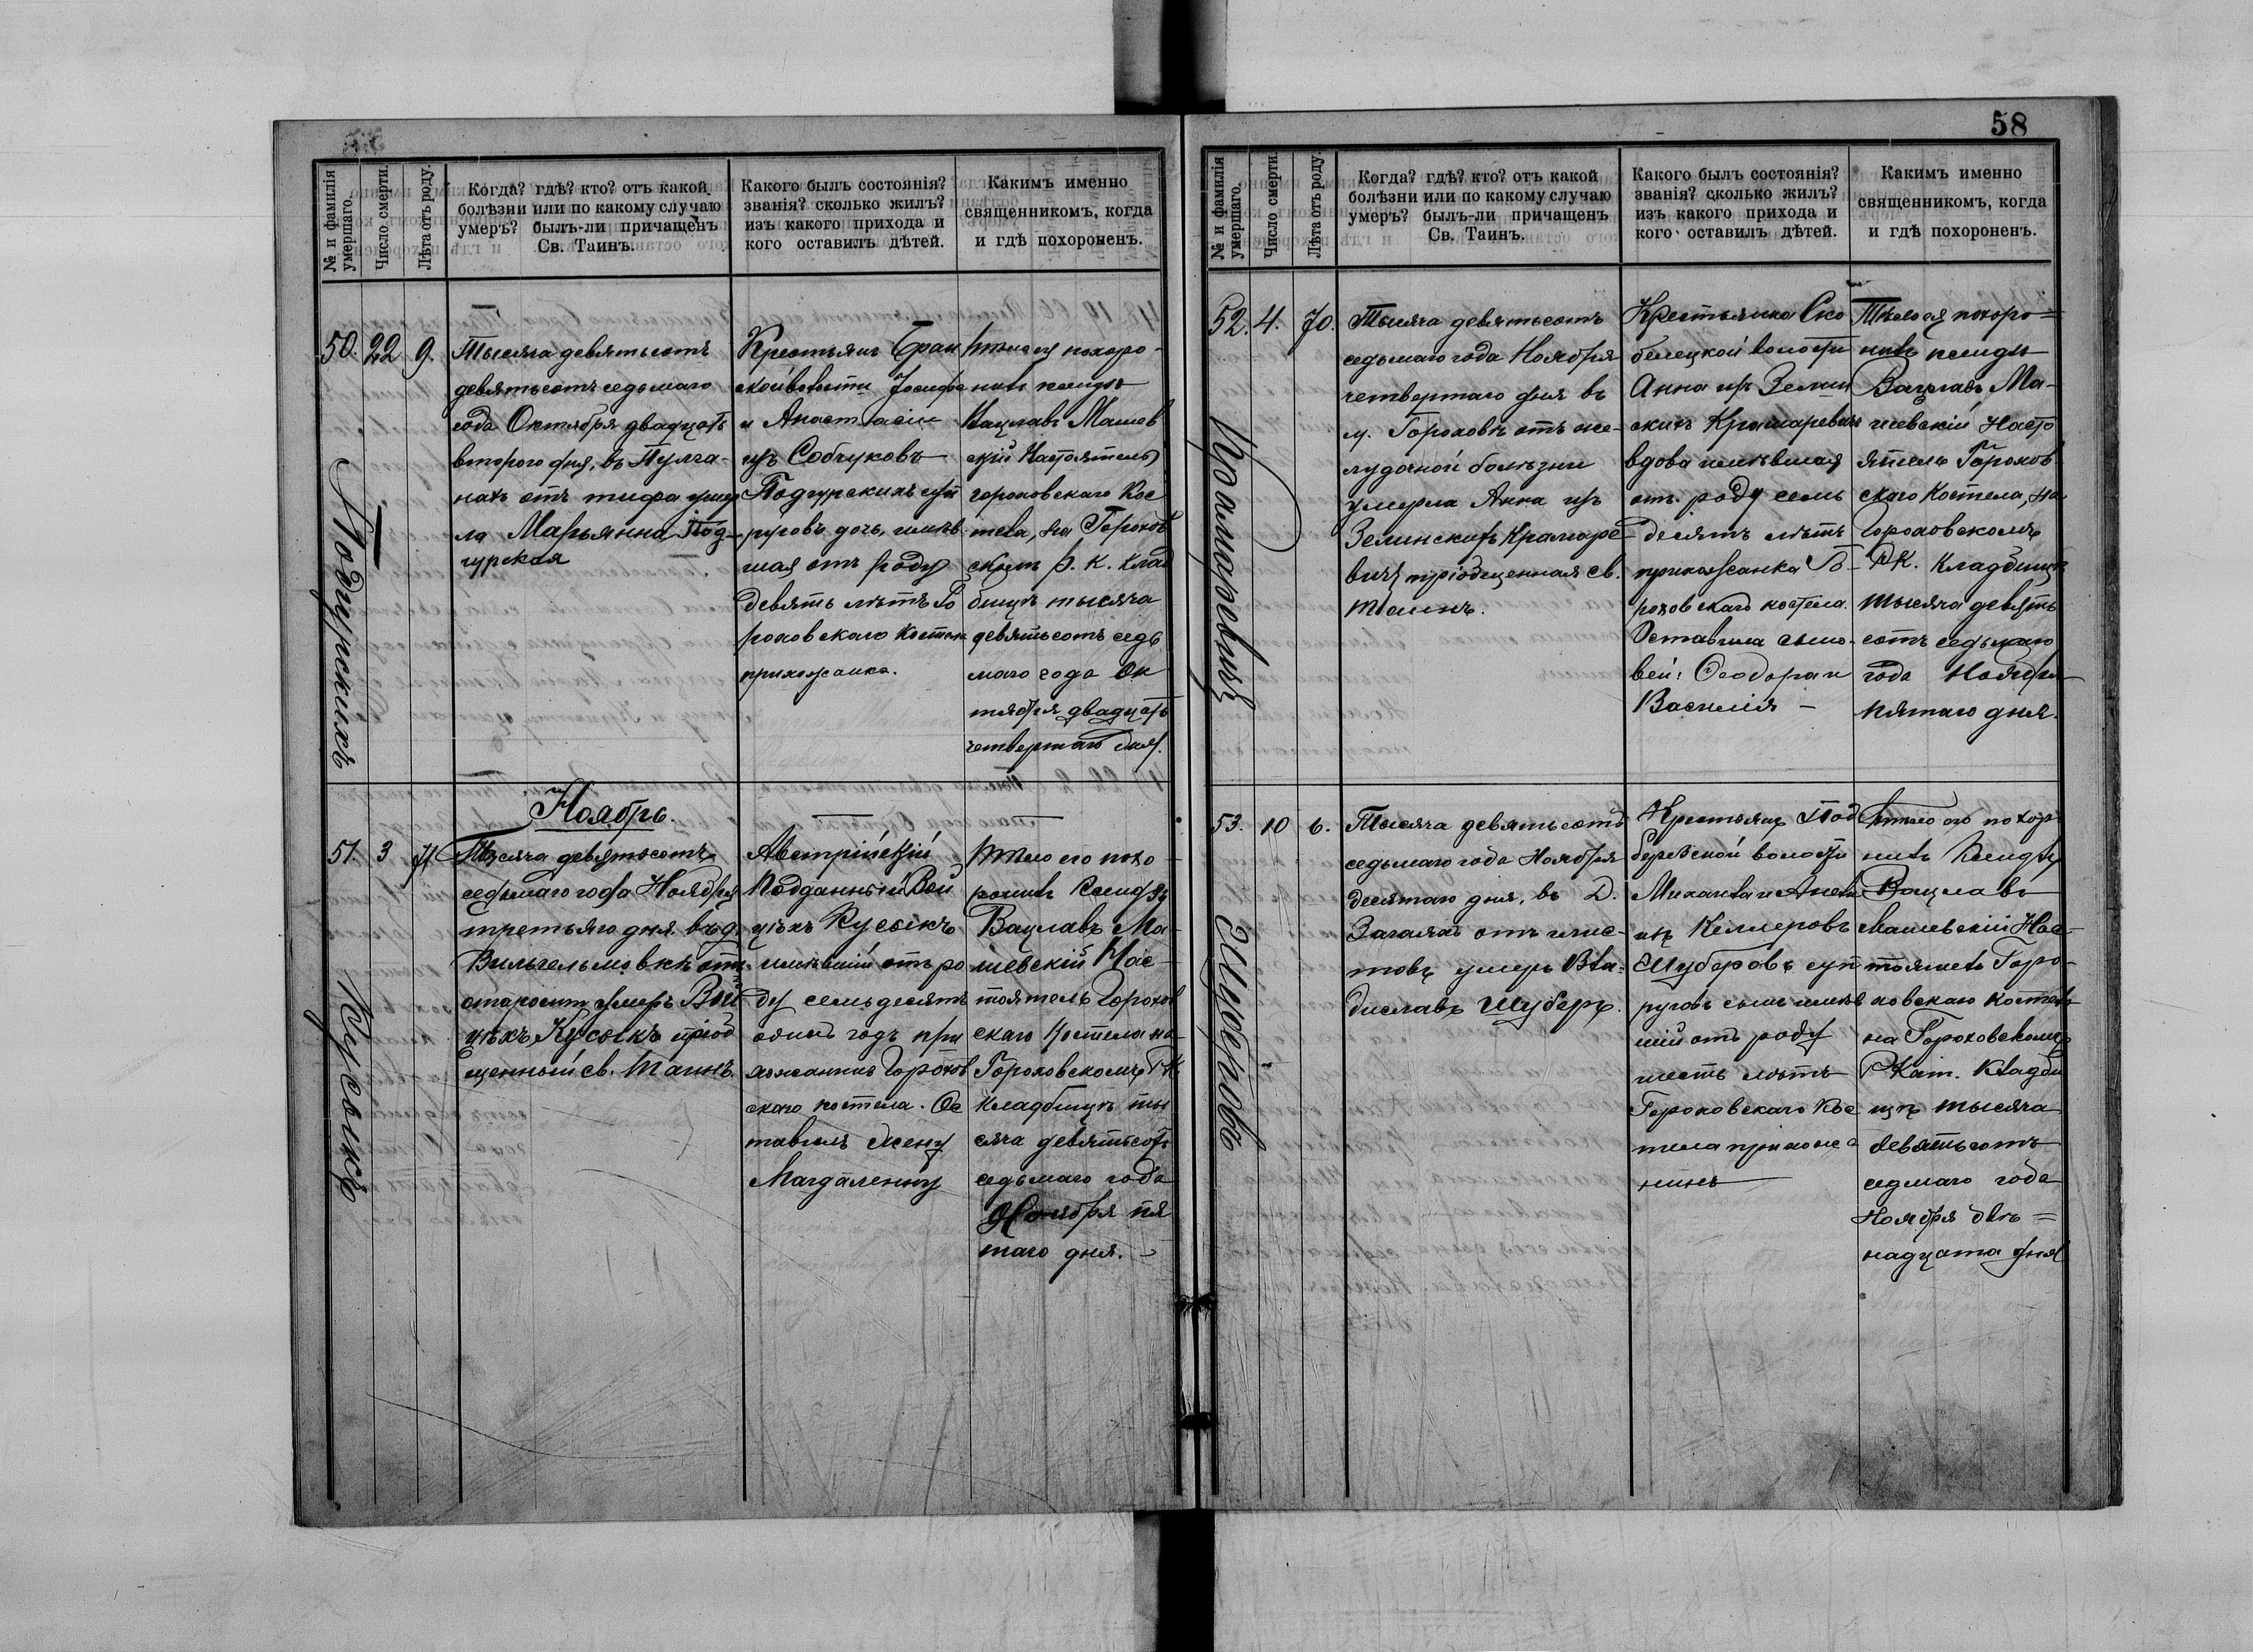 № и фамилія
умершаго.
Число смерти.
Лѣта отъ роду.
Когда? гдѣ? кто? отъ какой
болѣзни или по какому случаю
умеръ? былъ-ли причащенъ
Св. Таинъ.
Какого былъ состоянія?
званія? сколько жилъ?
изъ какого прихода и
кого оставилъ дѣтей.
Какимъ именно
священникомъ, когда
и гдѣ похороненъ.
50. 22 9.
Подгурскихъ
Тысяча девятьсотъ
девятьсотъ седьмаго
года Октября двадцать
второго дня, въ Пулга-
нахъ отъ тифа умер
ла Марьянна Под-
гурская
Крестьянъ Бран
ской волости Іосифа
и Анастасіи
изъ Собчуковъ
Подгурскихъ суп
руговъ дочь, имѣв
шая отъ роду
девять лѣтъ Го
роховскаго костела
прихожанка.
тѣло ея похоро-
нилъ ксендзъ
Вацлавъ Машев
скій Настоятель
гороховскаго Кос
тела, на Горохов
скомъ р. к. клад
бищѣ тысяча
девятьсотъ седь
маго года Ок
тября двадцать
четвертаго дня.
Ноябрь.
51. 3 71.
Кусыкъ
Тысяча девятьсотъ
седьмаго года Ноября
третьяго дня въ д.
Вильгельмовкѣ отъ
старости умеръ Вой
цѣхъ Кусыкъ пріоб
щенный св. Таинъ.
Австрійскій
Подданный Вой
цѣхъ Кусыкъ
имѣвшій отъ ро
ду семьдесятъ
одинъ годъ при
хожанинъ Горохов
скаго костела. Ос
тавилъ жену
Магдалену
Тѣло его похо-
ронилъ Ксендзъ
Вацлавъ Ма-
шевскій Нас-
тоятель Горохов
скаго костела на
Гороховскомъ РК
кладбищѣ ты
сяча девятьсотъ
седьмаго года
Ноября пя
таго дня.
58
№ и фамилія
умершаго.
Число смерти.
Лѣта отъ роду.
Когда? гдѣ? кто? отъ какой
болѣзни или по какому случаю
умеръ? былъ-ли причащенъ
Св. Таинъ.
Какого былъ состоянія?
званія? сколько жилъ?
изъ какого прихода и
кого оставилъ дѣтей.
Какимъ именно
священникомъ, когда
и гдѣ похороненъ.
52. 4. 70.
Крамаревичъ
Тысяча девятьсотъ
седьмаго года Ноября
четвертаго дня въ
м. Гороховѣ отъ же-
лудочной болѣзни
умерла Анна изъ
Зелинскихъ Крамаре
вичъ пріобщенная св.
Таинъ.
Крестьянка Ско
белецкой волости
Анна изъ Зелин
скихъ Крамаревичъ
вдова имѣвшая
отъ роду семь
десятъ лѣтъ
прихожанка Го-
роховскаго костела.
Оставила сыно-
вей: Ѳеодора и
Василія -
Тѣло ея похоро=
нилъ ксендзъ
Вацлавъ Ма-
шевскій Насто
ятель Горохов
скаго Костела, на
Гороховскомъ
РК. Кладбищѣ
тысяча девять
сотъ седьмаго
года Ноября
пятаго дня.
53. 10 6.
Шуберовъ
Тысяча девятьсотъ
седьмаго года Ноября
десятаго дня, въ д.
отъ глис-
товъ умеръ Вла-
диславъ Шуберъ.
Крестьянъ Под
березской волости
Михаила и
изъ Келлеровъ
Шуберовъ суп
руговъ сынъ имѣв
шій отъ роду
шесть лѣтъ
Гороховскаго Кос
тела прихожа
нинъ
тѣло его похоро
нилъ Ксендзъ
Вацлавъ
Машевскій Нас-
тоятель Горо-
ховскаго костела
на Гороховскомъ
РКат. Кладби
щѣ тысяча
девятьсотъ
седмаго года
Ноября двѣ=
надцата дня